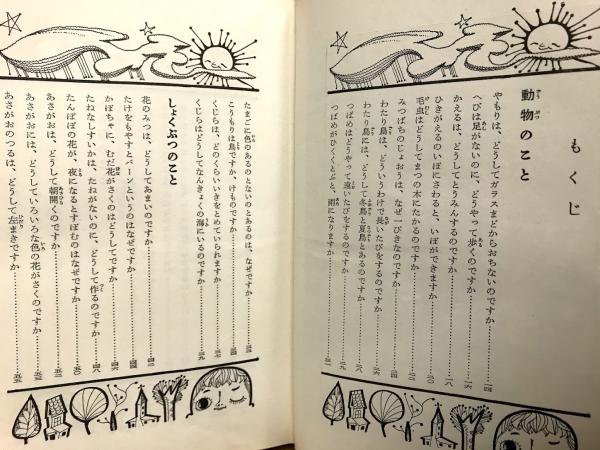 もくじ
動物のこと
やもりは、どうしてガラスまどからおちないのですか……一四
へびは足がないのに、どうやって歩くのですか……一六
かえるは、どうしてとうみんするのですか……一八
ひきがえるのいぼにさわると、いぼができますか……二〇
毛虫はどうしてまつの木にたかるのですか
みつばちのじょおうは、なぜ一ぴきなのですか……二四
わたり鳥は、どういうわけで長いたびをするのですか
わたり鳥には、どうして冬鳥と夏鳥とあるのですか
つばめはどうやって遠いたびをするのですか……二九
つばめがひくくとぶと、雨になりますか……三一
たまごに色のあるのとないのとあるのは、なぜですか……三三
こうもりは鳥ですか、けものですか
くじらは、どのくらいいきをとめていられますか……三七
くじらはどうしてなんきょくの海にいるのですか……三九
しょくぶつのこと
花のみつは、どうしてあまいのですか……四二
たけをもやすとパーンというのはなぜですか……四四
かぼちゃに、むだ花がさくのはどうしてですか……四六
たねなしすいかは、たねがないのに、どうして作るのですか……四八
たんぽぽの花が、夜になるとすぼむのはなぜですか……五〇
あさがおは、どうして朝開くのですか……五二
あさがおには、どうしていろいろな色の花がさくのですか
あさがおのつるは、どうして左まきですか……五五